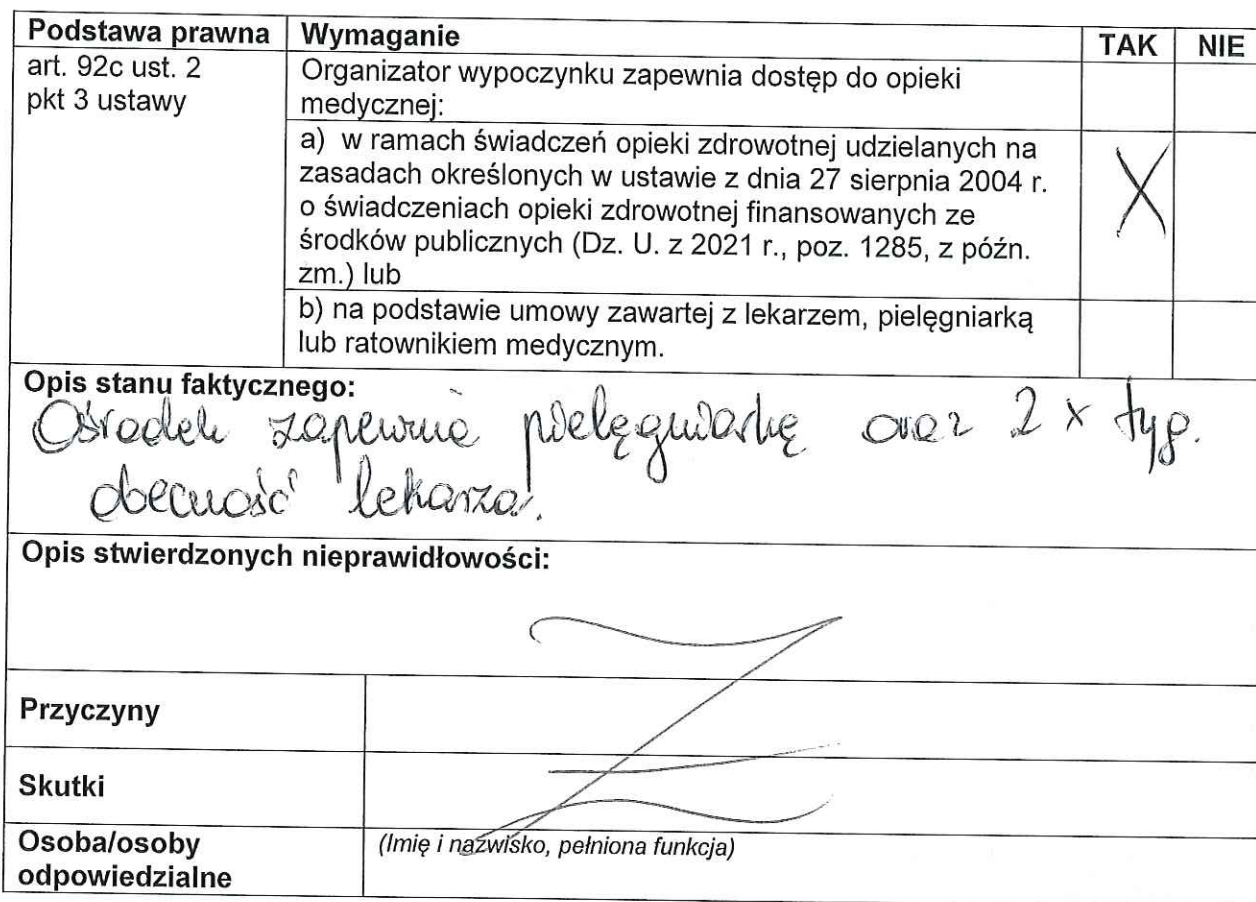 Podstawa prawna Wymaganie TAK NIE
art. 92c ust. 2
pkt 3 ustawy
Organizator wypoczynku zapewnia dostęp do opieki
medycznej:
a) w ramach świadczeń opieki zdrowotnej udzielanych na
zasadach określonych w ustawie z dnia 27 sierpnia 2004 r.
o świadczeniach opieki zdrowotnej finansowanych ze
środków publicznych (Dz. U. z 2021 r., poz. 1285, z późn.
zm.) lub
X
b) na podstawie umowy zawartej z lekarzem, pielęgniarką
lub ratownikiem medycznym.
Opis stanu faktycznego:
Ośrodek zapewnia pielęgniarkę oraz 2 x tyg.
obecność lekarza.
Opis stwierdzonych nieprawidłowości:
Przyczyny
Skutki
Osoba/osoby
odpowiedzialne
(Imię i nazwisko, pełniona funkcja)